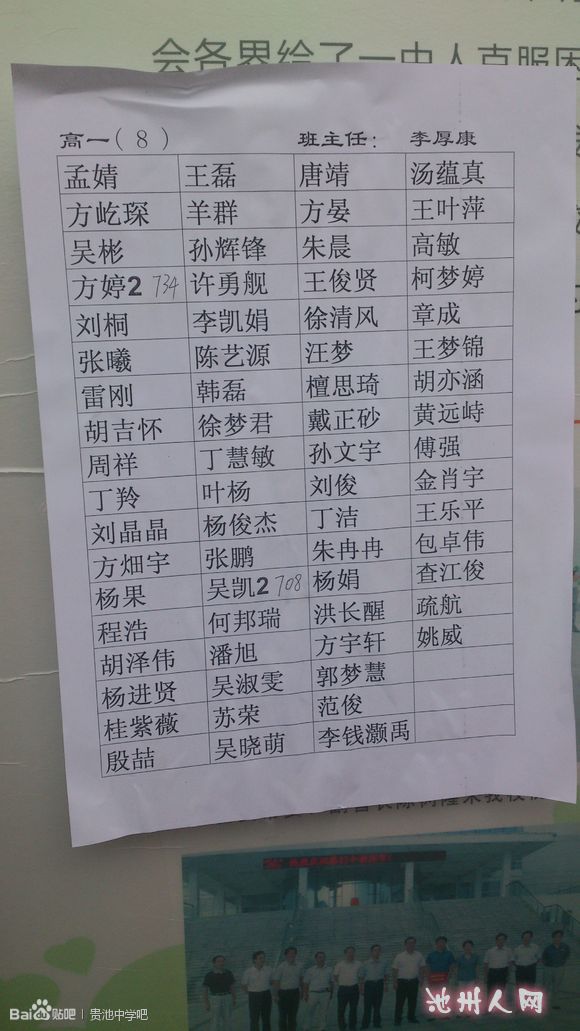 会各界给了一中人克服困
高一(8) 班主任: 李厚康
孟婧 王磊 唐靖 汤蕴真
方屹琛 羊群 方晏 王叶萍
吴彬 孙辉锋 朱晨 高敏
方婷2 734 许勇舰 王俊贤 柯梦婷
刘桐 李凯娟 徐清风 章成
张曦 陈艺源 汪梦 王梦锦
雷刚 韩磊 檀思琦 胡亦涵
胡吉怀 徐梦君 戴正砂 黄远峙
周祥 丁慧敏 孙文宇 傅强
丁羚 叶杨 刘俊 金肖宇
刘晶晶 杨俊杰 丁洁 王乐平
方畑宇 张鹏 朱冉冉 包卓伟
杨果 吴凯2 708 杨娟 查江俊
程浩 何邦瑞 洪长醒 疏航
胡泽伟 潘旭 方宇轩 姚威
杨进贤 吴淑雯 郭梦慧
桂紫薇 苏荣 范俊
殷喆 吴晓萌 李钱灏禹
Bai贴吧 | 贵池中学吧
池州人网